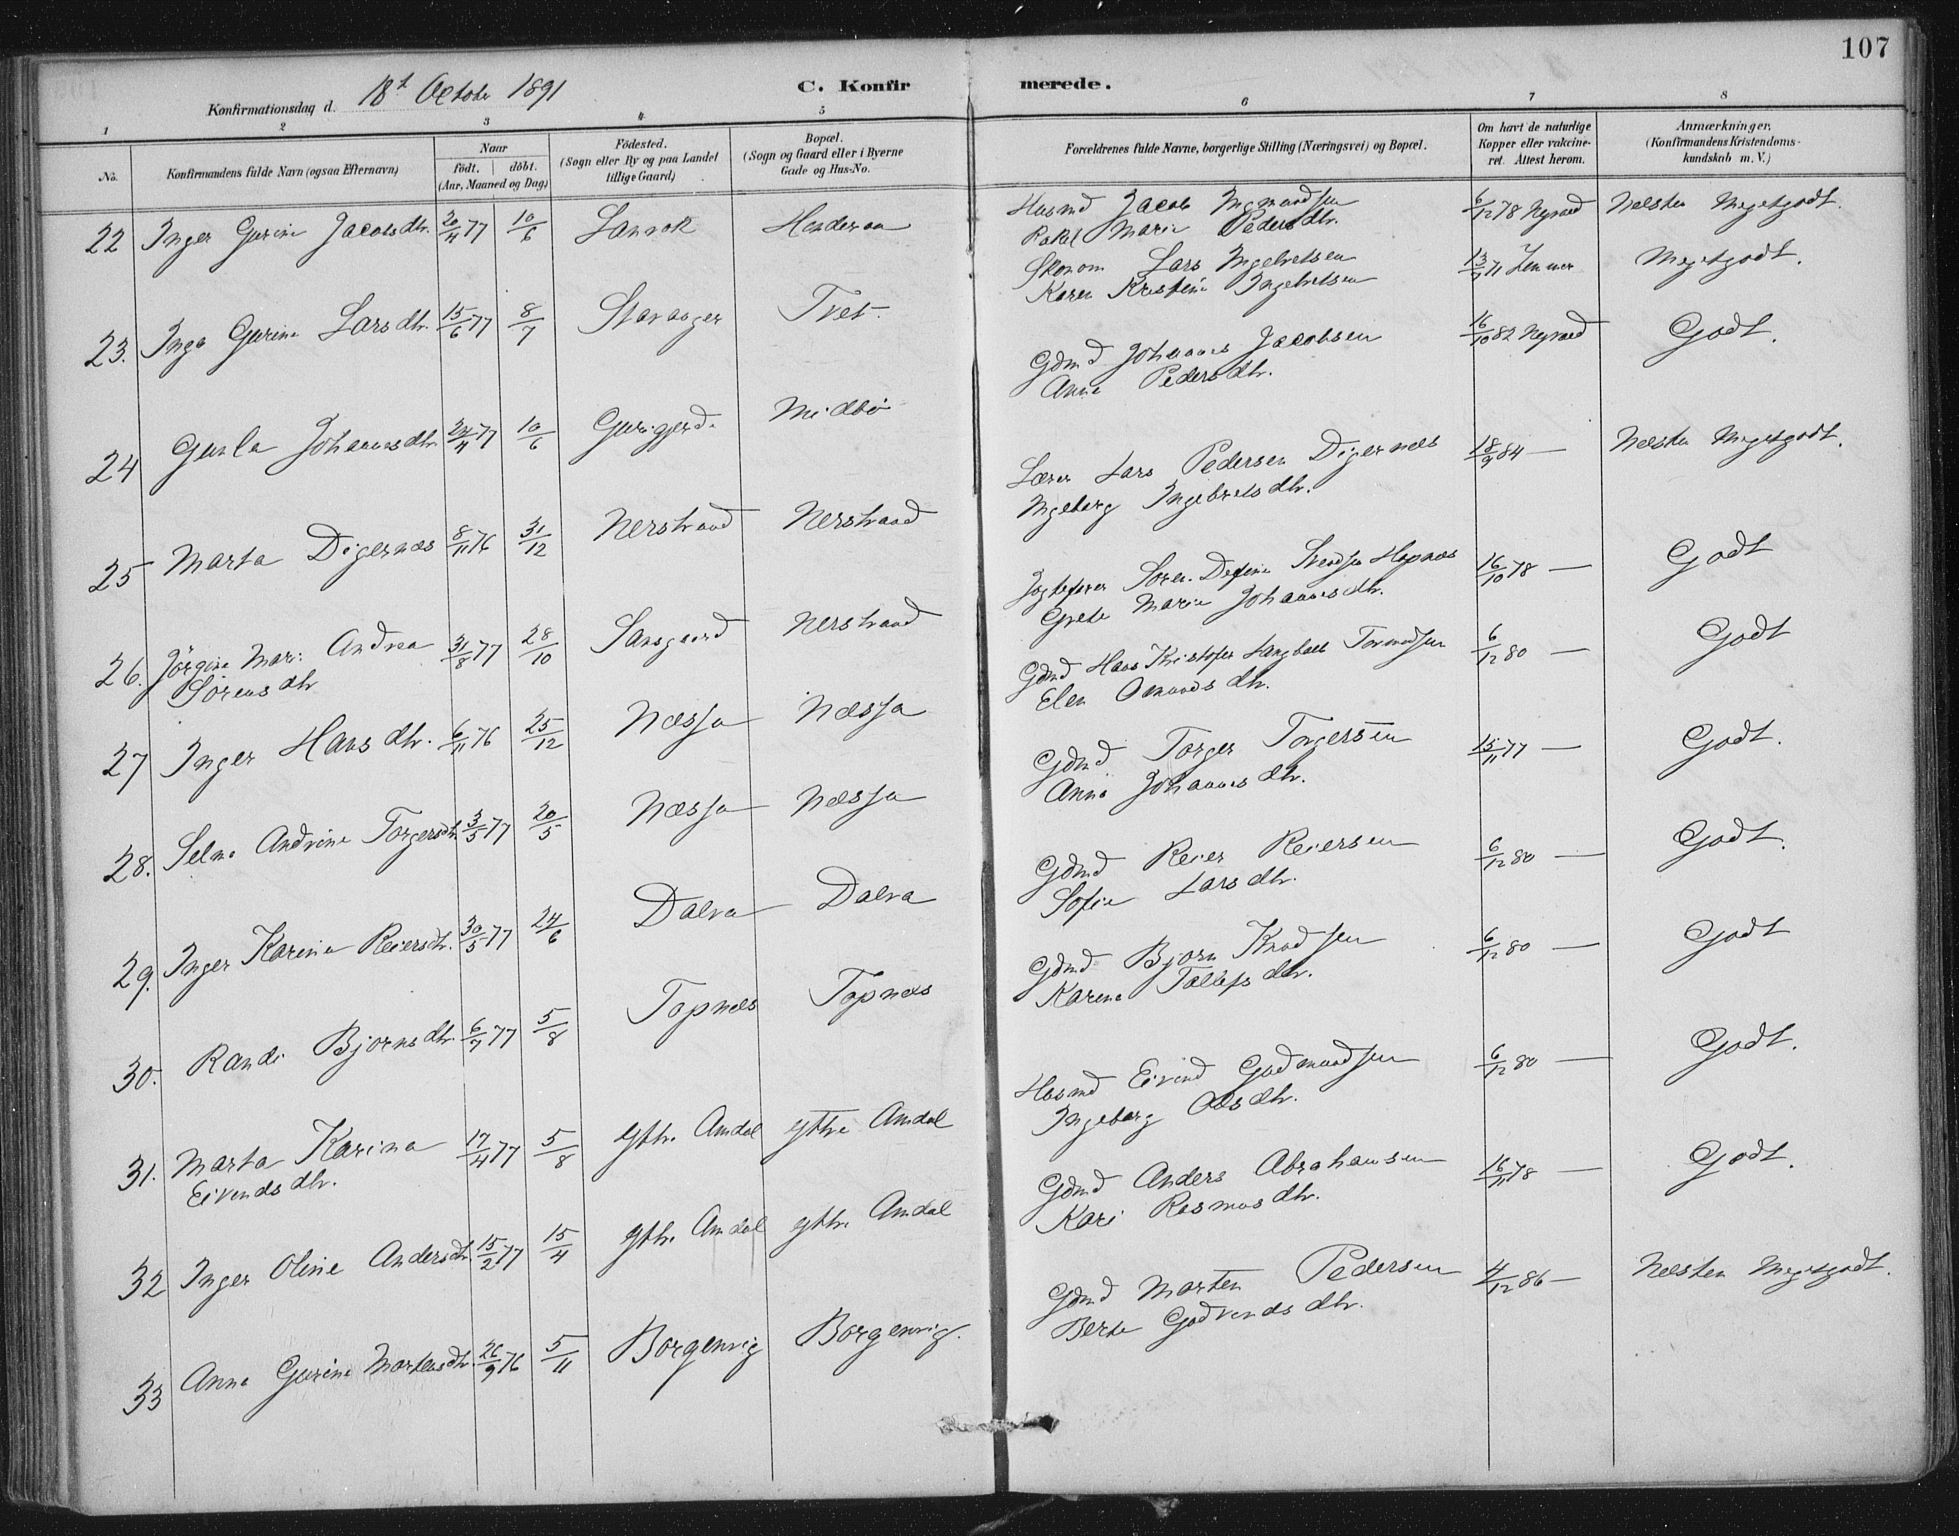 107
Konfirmationsdag d. 18d October 1891
C. Konfirmerede.
1 2 3 4 5 6 7 8
No. Konfirmandens fulde Navn (ogsaa Efternavn) Naar födt. döbt. (Aar, Maaned og Dag) Födested. (Sogn eller By og paa Landet tillige Gaard) Bopæl. (Sogn og Gaard eller i Byerne Gade og Hus-No. Forældrenes fulde Navne, borgerlige Stilling (Næringsvei) og Bopæl. Om havt de naturlige Kopper eller vakcineret. Attest herom. Anmærkninger. (Konfirmandens Kristendomskundskab m. V.)
22 Inger Gurine Jacobsdtr. 20/4 77 10/6 Husmd Jacob
Rakel Marie Pedersdtr. 6/12 78 Næsten Megetgodt.
23. Inga Gurine Larsdtr. 15/6 77 8/7 Stavanger Tvet Lars Ingebretsen
Karen Kristine Ingebretsen 13/7 71 Megetgodt.
24 Gunla Johannesdtr. 24/4 77 10/6 Midbö Gdmd Johannes Jacobsen
Anna Pedersdtr. 16/10 82 Godt.
25 Marta Digernæs 8/11 76 31/12 Nerstrand Nerstrand Lærer Lars Pedersen Digernæs
Ingeborg Ingebretsdtr. 18/9 84 — Næsten Megetgodt.
26. Jörgine Mar: Andrea
Sörensdtr 31/8 77 28/10 Sandsgaard Nerstrand
Grete Marie Johannesdtr. 16/10 78 — Godt
27 Inger Hansdtr. 6/11 76 25/12 Næssa Næssa Gdmd Hans Kristofer
Elen Omundsdtr. 6/12 80 — Godt
28. Selma Andrine Torgersdtr. 3/5 77 20/5 Næssa Næssa Gdmd Torger Torgersen
Anna Johannesdtr. 15/11 77 — Godt.
29. Inger Karine Reiersdtr. 30/5 77 24/6 Dalva Dalva Gdmd Reier Reiersen
Sofie Larsdtr. 6/12 80 — Godt.
30. Randi Bjornsdtr. 6/7 77 5/8 Topnæs Topnæs Gdmd Bjorn Knudsen
Karena Tollefsdtr. 6/12 80 — Godt
31. Marta Karina
Eivendsdtr. 17/4 77 5/8 Ytre Amdal Ytre Amdal Husmd Eivend Gudmundsen
Ingeborg Olsdtr. 6/12 80 — Godt.
32 Inger Oline Andersdtr. 15/2 77 15/4 Ytre Amdal Ytre Amdal Gdmd Anders Abrahamsen
Kari Rasmusdtr. 16/11 78 — Godt.
33 Anna Gurine Martensdtr. 26/9 76 5/11 Borgenvig Borgenvig. Gdmd Marten Pedersen
Berta Gudvendsdtr. 4/12 86 — Næsten Megetgodt.